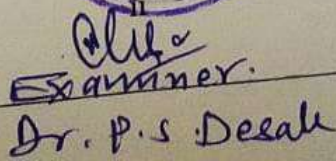 Examiner.
Dr. P.S. Desale